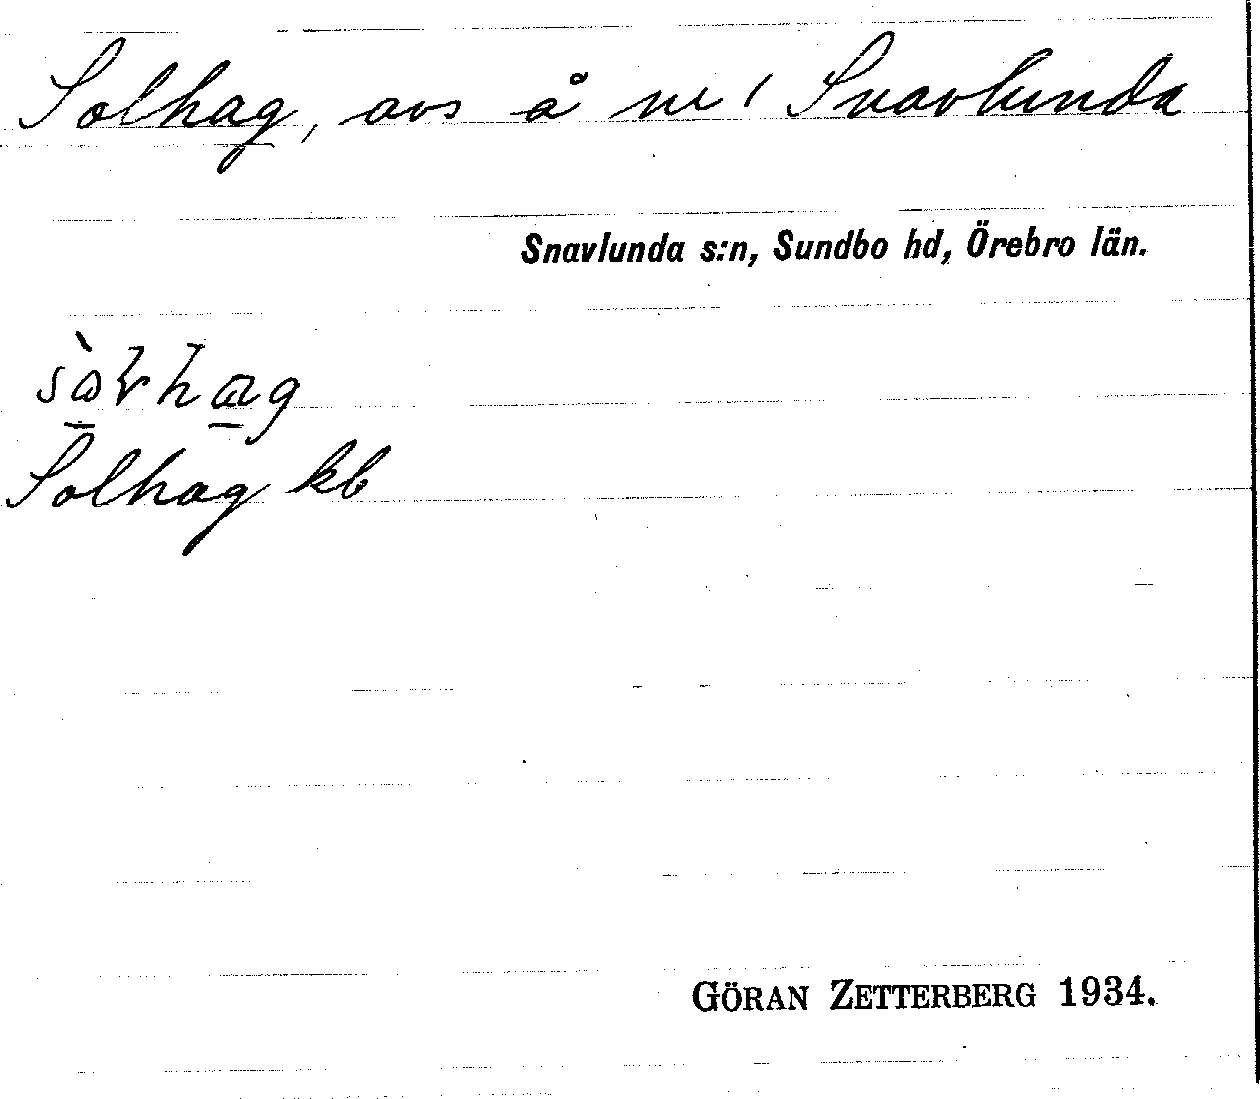 Solhag, avs å nr 1 Snavlunda
Snavlunda s:n, Sundbo hd, Örebro län.
Solhag kb
GÖRAN ZETTERBERG 1934.